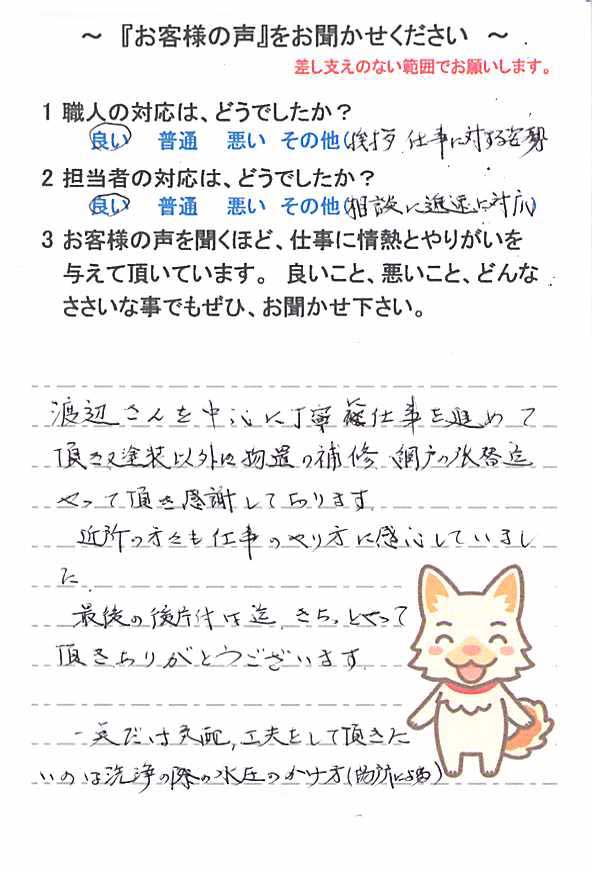 ～ 『お客様の声』をお聞かせください ～
差し支えのない範囲でお願いします。
1 職人の対応は、どうでしたか？
良い 普通 悪い その他(挨拶 仕事に対する姿勢
2 担当者の対応は、どうでしたか？
良い 普通 悪い その他(相談に迅速に対応)
3 お客様の声を聞くほど、仕事に情熱とやりがいを
与えて頂いています。 良いこと、悪いこと、どんな
ささいな事でもぜひ、お聞かせ下さい。
渡辺さんを中心に丁寧 仕事を進めて
頂き又塗装以外に物置の補修 網戸の張替迄
やって頂き感謝しております
近所の方々も仕事のやり方に感心していまし
た.
最後の後片付け迄 きちっとやって
頂きありがとうございます.
一点だけ 工夫をして頂きた
いのは洗浄の際の水圧のかけ方(場所による)